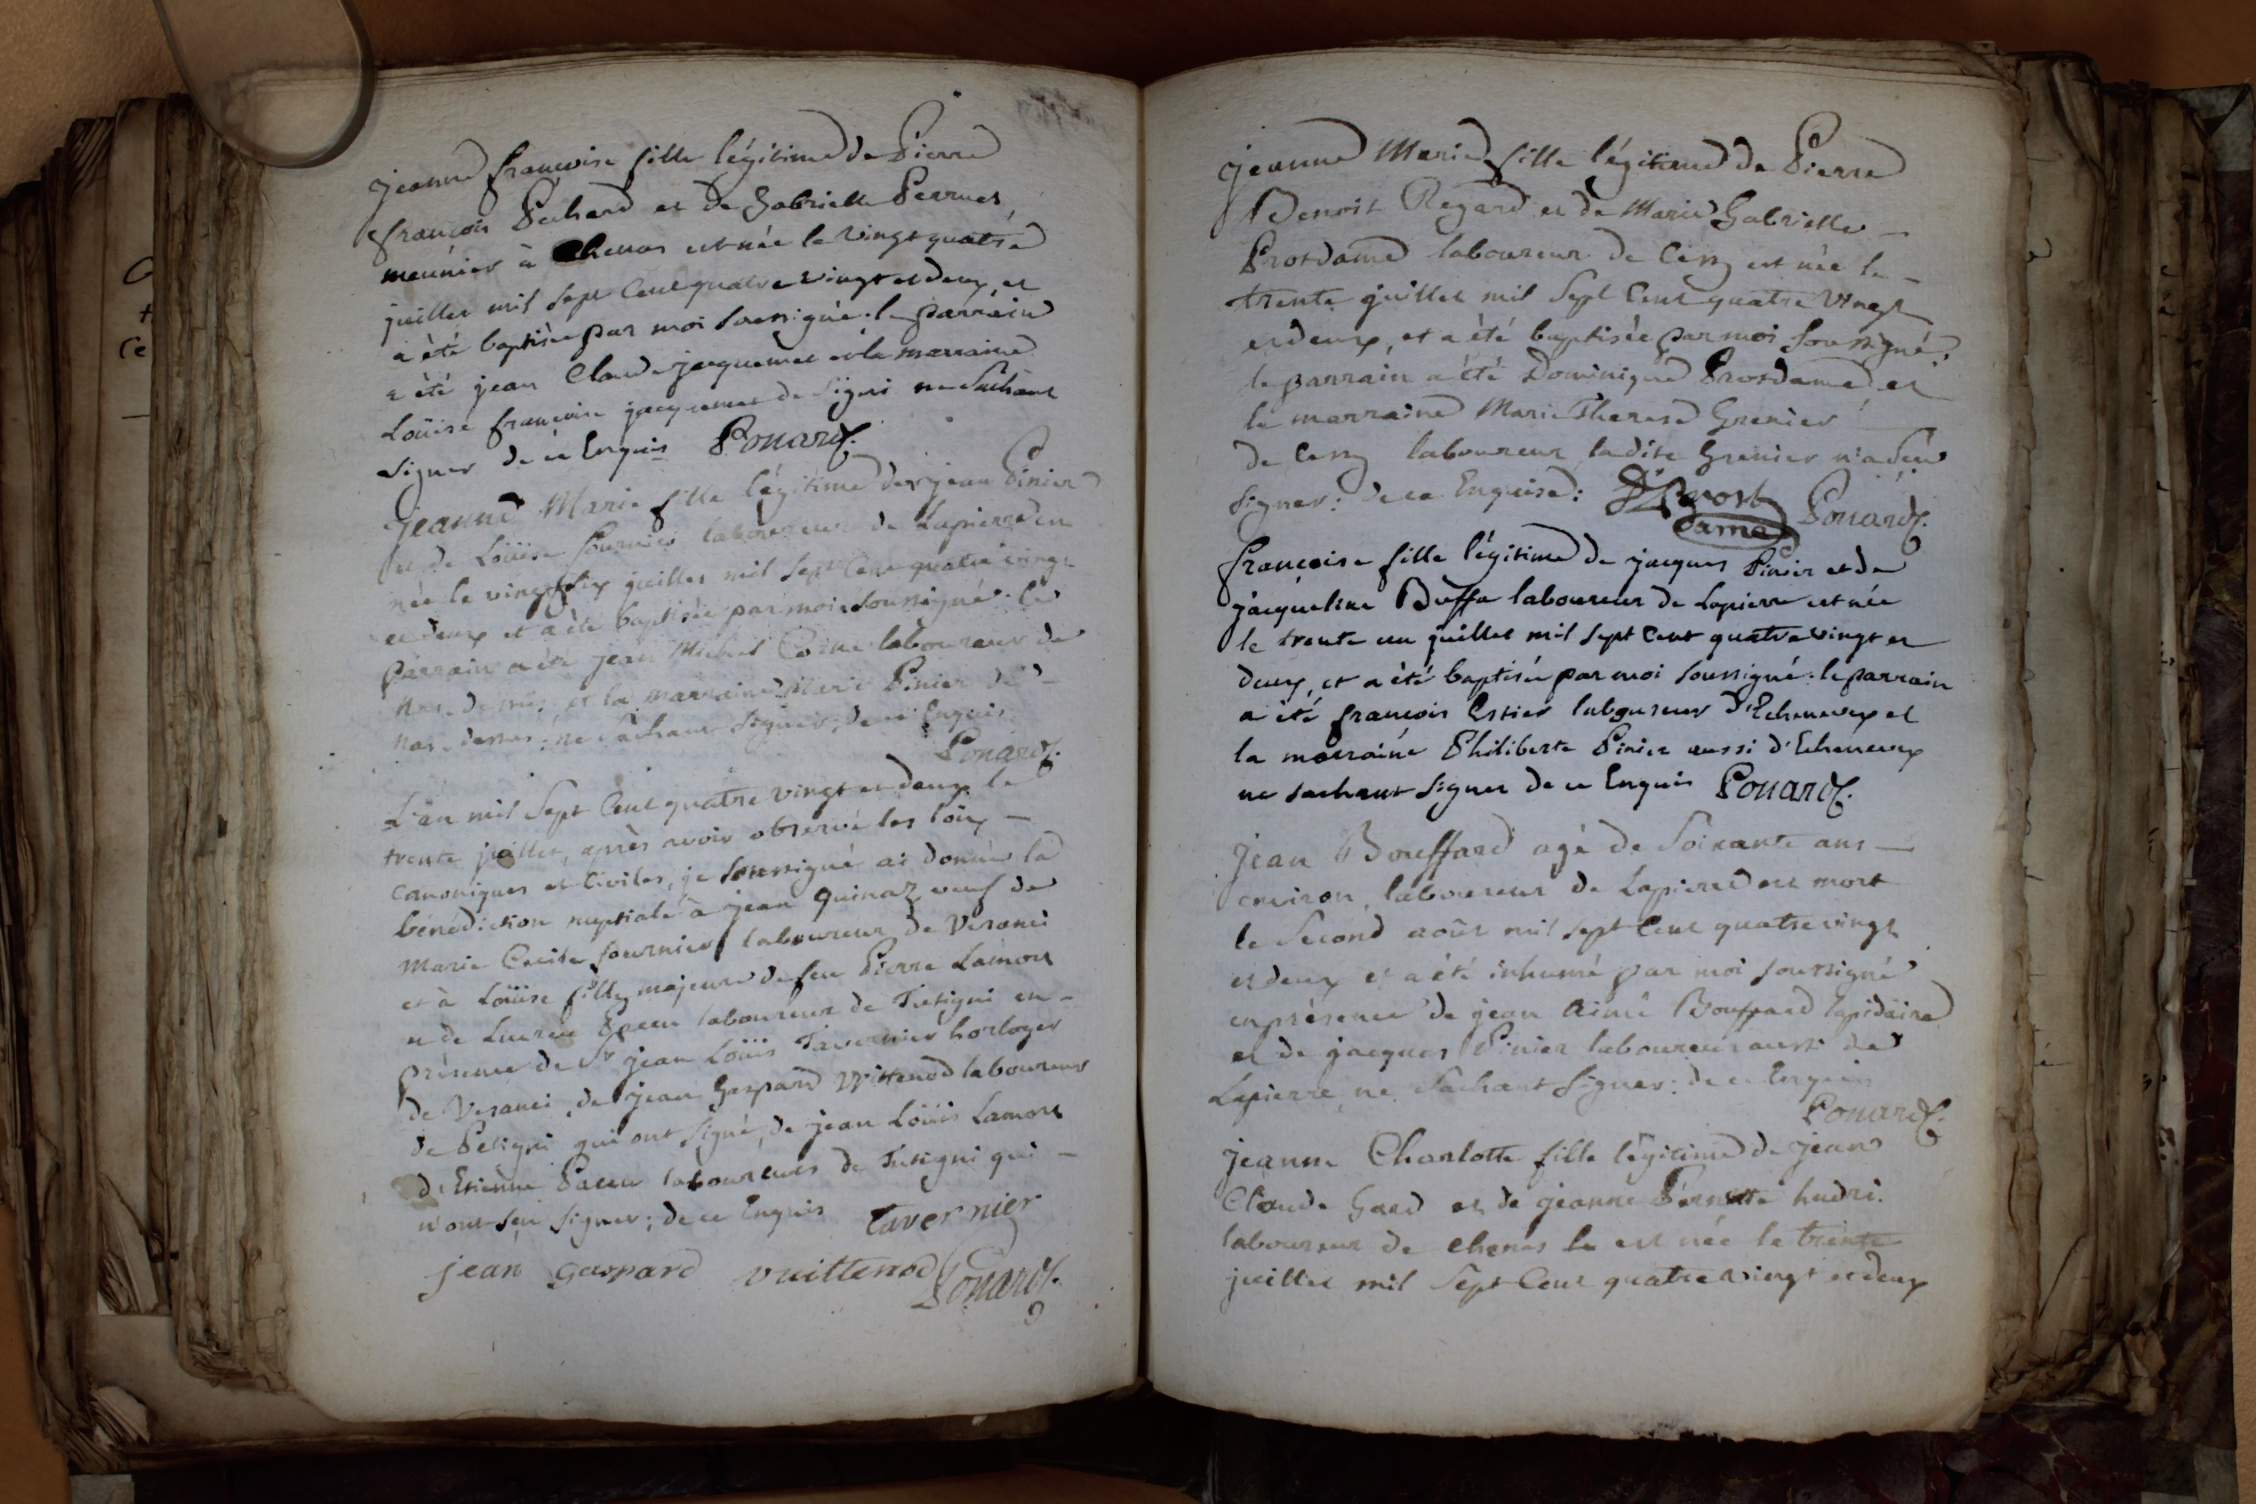 jeanne françoise fille légitime de Pierre
françois Pechard et de Gabrielle Perruet
meúnier à Chenas est née le vingt quatre
juillet mil sept Cent quatre vingt et deux, et
a été baptisée par moi soussigné: le parrain
a été jean Claude jacquemet et la marraine
Loüise françoise jacquemet de Signi ne sachant
signer de ce Enquis Pouard.
jeanne Marie fille légitime de jean Pinier
et de Loüise fournier laboureur de Lapierre en
née le vingt six juillet mil sept Cent quatre vingt
et deux et a été baptisée par moi soussigné: le
parrain a été jean Michel laboureur de
et la marraine Marie Pinier de
ne sachant signer; de ce Enquis
Pouard.
L'an mil sept Cent quatre vingt et deux le
trente juillet, après avoir observé les loix
canoniques et Civiles, je soussigné ai donné la
bénédiction nuptiale à jean quinaz veuf de
Marie Cecile fournier laboureur de Vesanci
et à Loüise fille majeure de feu Pierre Lamort
et de laboureur de Tutigni en
présence de Sr jean Loüis Tavernier horloger
de Vesanci, de jean Gaspard Vvittenod laboureur
de Petigni qui ont signé, de jean Loüis Lamort
d'Etiènne Pacau laboureurs de Tutigni qui
n'ont sçu signer; de ce Enquis tavernier
jean gaspard vuittenod Pouard.
jeanne Marie fille légitime de Pierre
Benoit Regard et de Marie Gabrielle
Prostdame laboureur de Cessy est née le
trente juillet mil sept Cent quatre vingt
et deux, et a été baptisée par moi soussigné;
le parrain a été Dominique Prostdame et
la marraine Marie Therese Grenier
de Cessy laboureur ladite Grenier n'a sçu
signer: de ce Enquise: D Prost
dame Pouard.
françoise fille légitime de jacques Pinier et de
jacqueline Buffa laboureur de Lapierre est née
le trente un juillet mil sept Cent quatre vingt et
deux, et a été baptisée par moi soussigné: le parrain
a été françois Estier laboureur d'Echenevex et
la marraine Philiberte Pinier aussi d'Echenevex
ne sachant signer de ce Enquis Pouard.
jean Bouffard agé de soixante ans
environ, laboureur de Lapierre est mort
le second août mil sept Cent quatre vingt
et deux et a été inhumé par moi soussigné
en présence de jean Aimé Bouffard lapidaire
et de jacques Pinier laboureur aussi de
Lapierre ne sachant signer: de ce Enquis
Pouard.
jeanne Charlotte fille légitime de jean
Claude Gard et de jeanne Pernette hudri.
laboureur de chenas la est née le trente
juillet mil sept Cent quatre vingt et deux